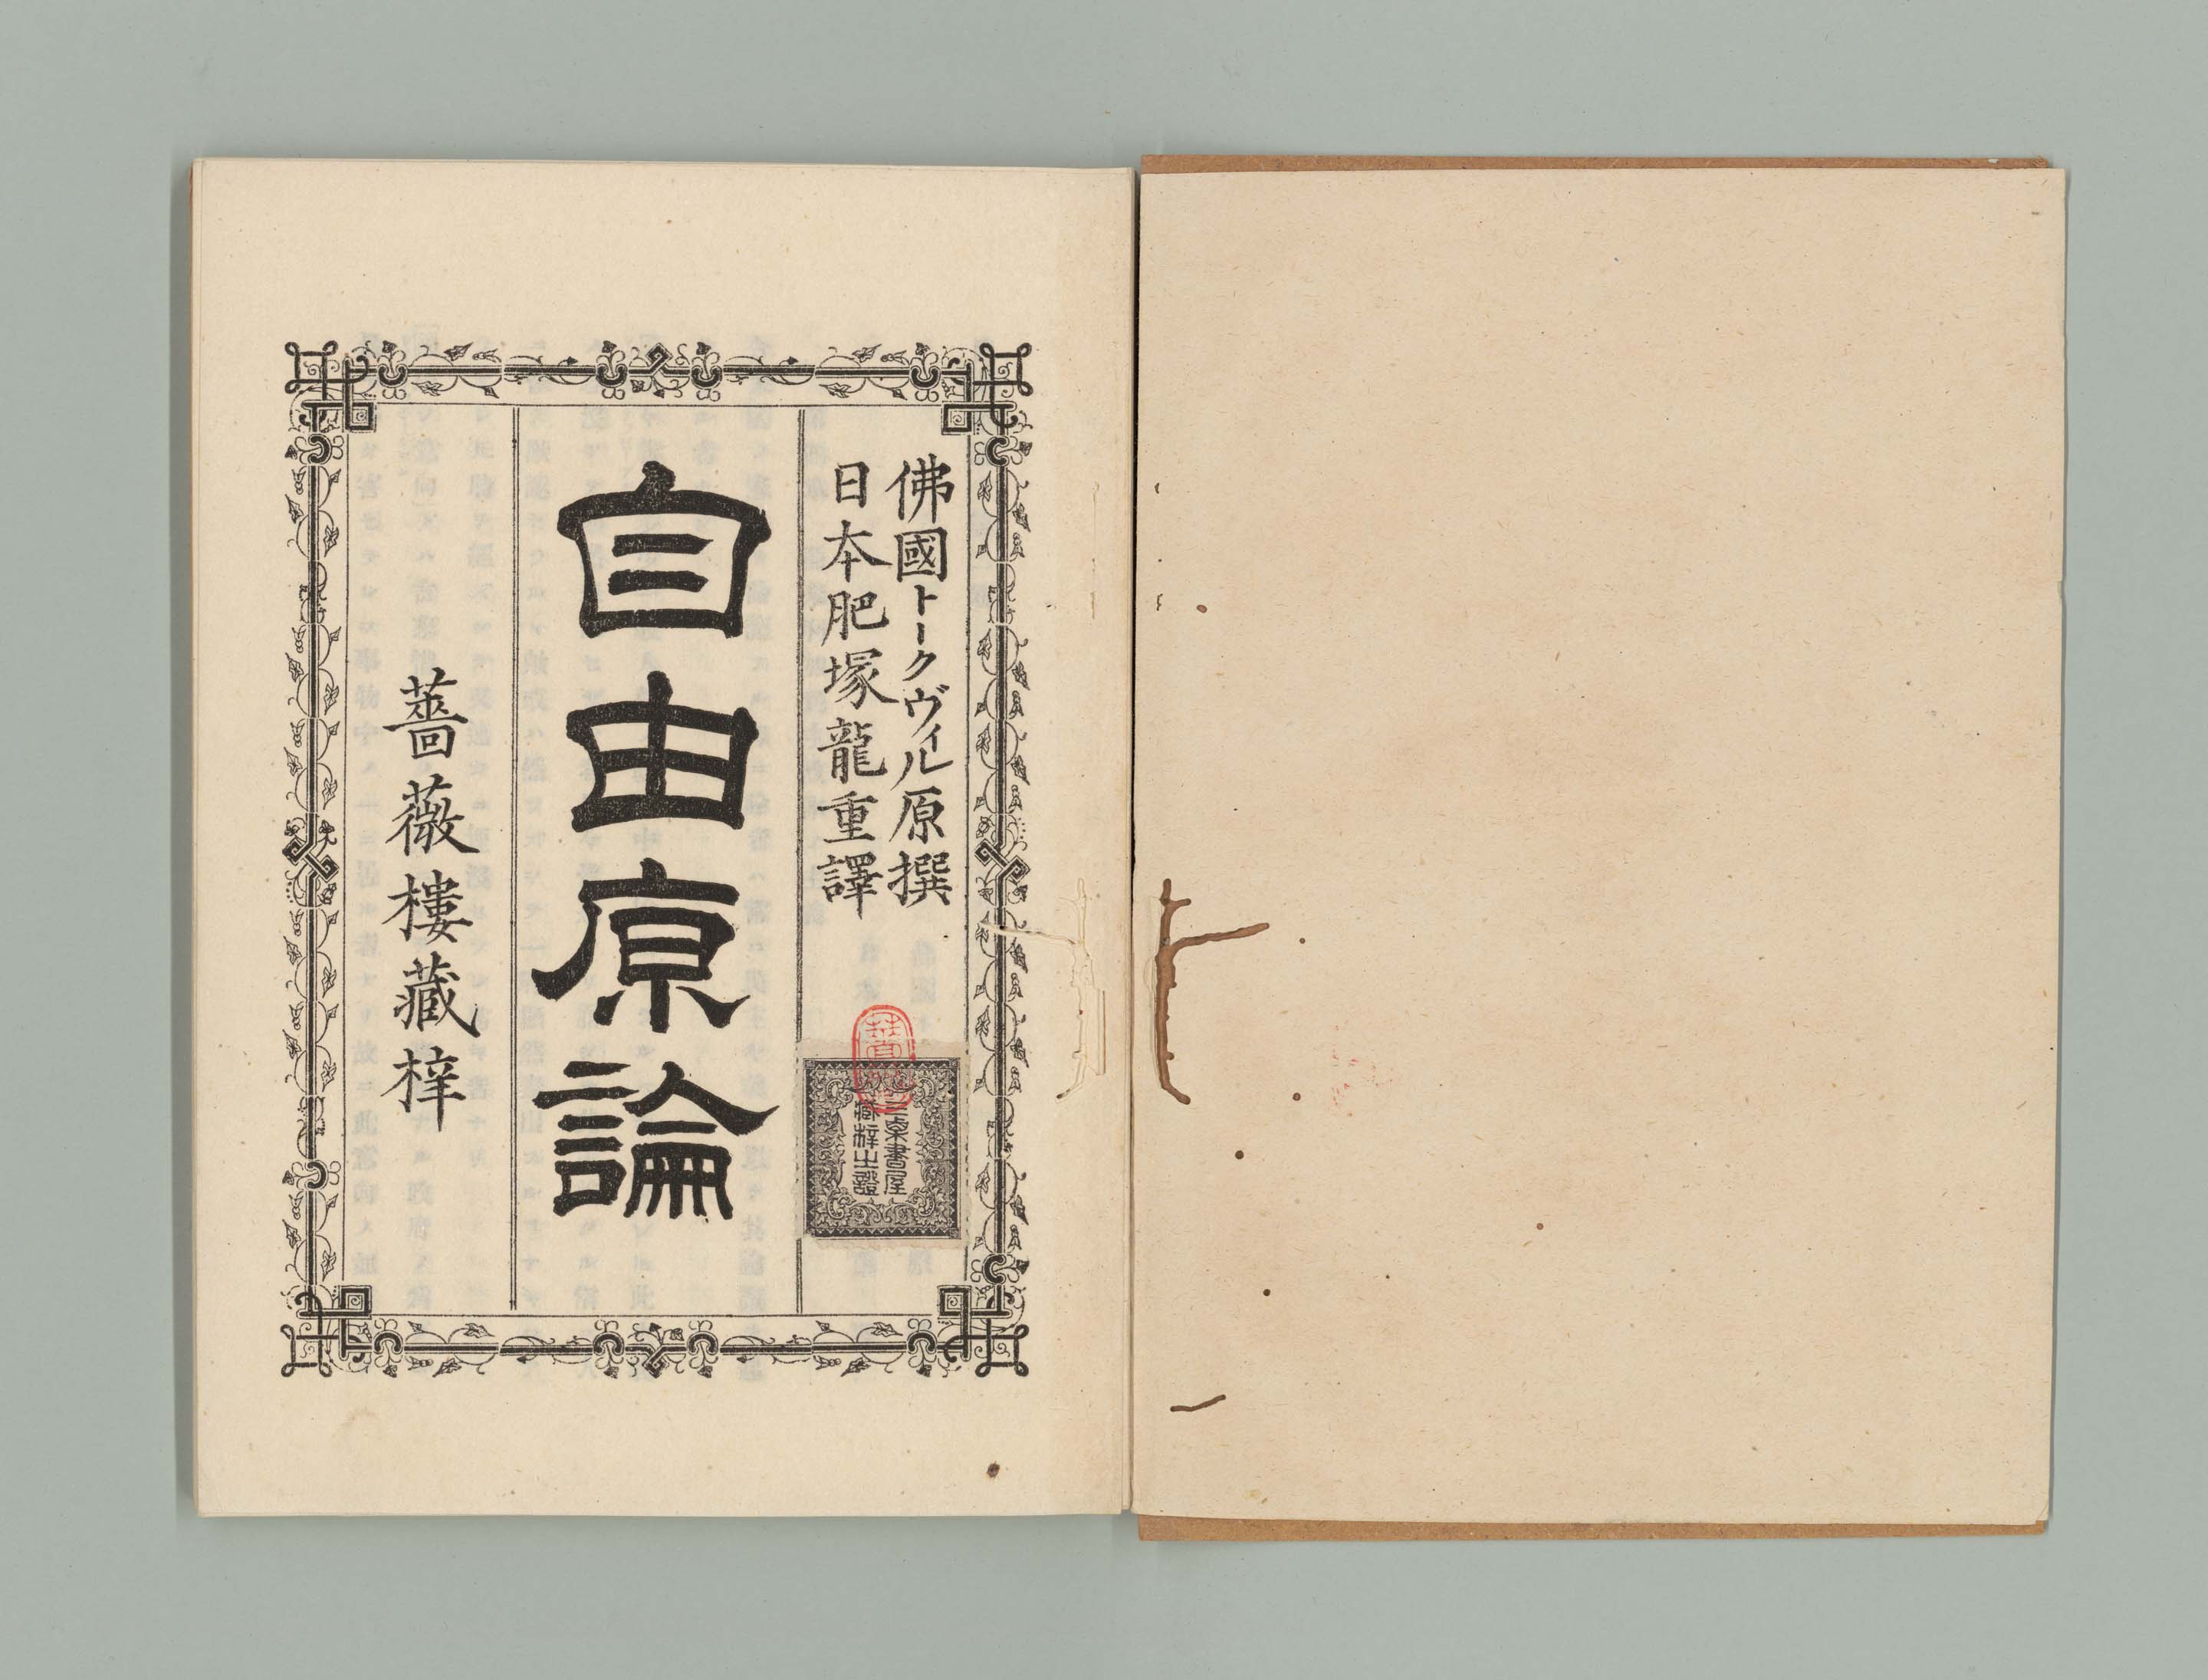 佛國トークヴィル原撰
日本肥塚龍重譯
自由原論
薔薇樓藏梓
書屋
藏梓之證